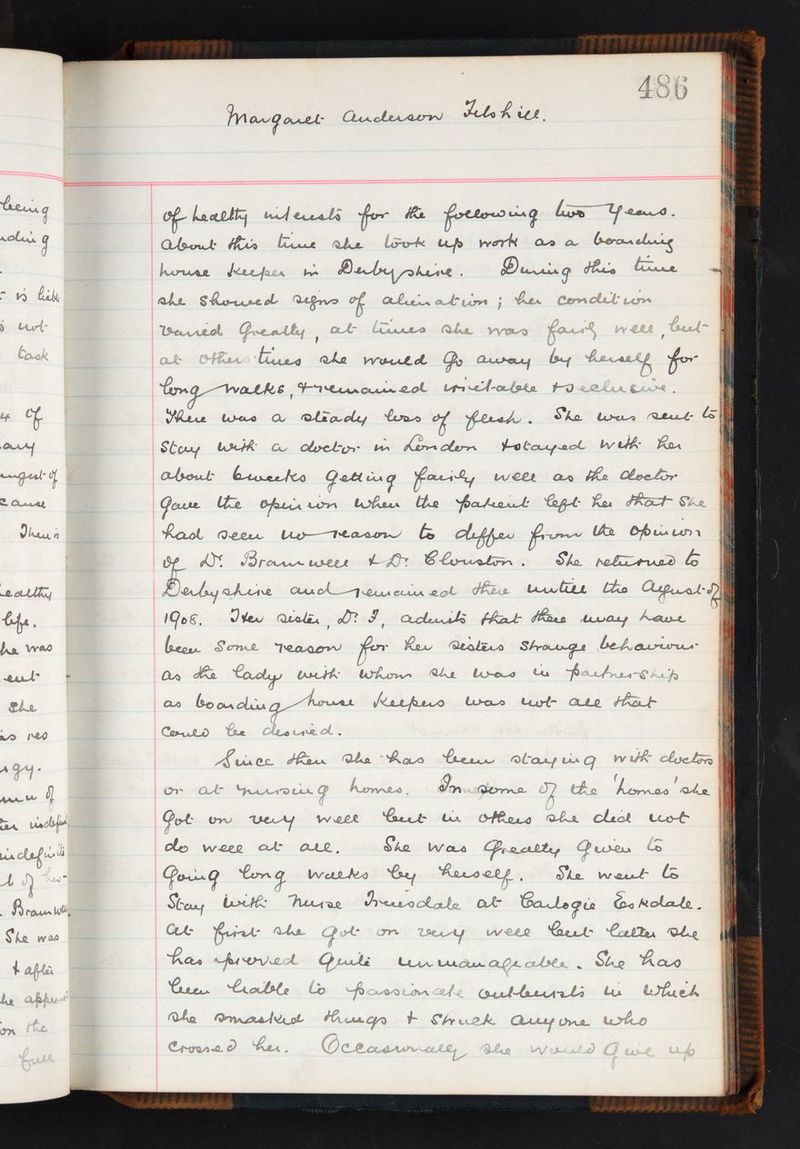 being
is liable
not
task
of
any
youngest of
cause
There is
healthy
life.
she was
sent
She
was no
of
indefinite
of her
Bramwell
She was
& after
she appeared
on the
full
486
Margaret Anderson Filshill.
of healthy interests for the following two years.
About this time she took up work as a boarding
house keeper in Derbyshire. During this time
she showed signs of alienation; her condition
varied greatly, at times she was fairly well, but
at others times she would go away by herself for
long walks, & remained irritable & seclusive.
There was a steady loss of flesh. She was sent to
stay with a doctor in London & stayed with her
about 6 weeks getting fairly well as the doctor
gave the opinion when the patient left her that she
had seen no reason to differ from the opinion
of Dr. Bramwell & Dr. Clouston. She returned to
Derbyshire and remained there untill the Agust of
1908. Her sister, Dr. F, admits that there may have
been some reason for her sisters strange behaviour
as the lady with whom she was in partnership
as boarding house keepers was not all that
could be desired.
Since then she has been staying with doctors
or at nursing homes. In some of the 'homes' she
got on very well but in others she did not
do well at all. She was greatly given to
going long walks by herself. She went to
stay with Nurse Truesdale at Carlogie Eskdale.
At first she got on very well but latter she
has proved quite unmanageable. She has
been liable to passionate outbursts in which
she smashed things & struck anyone who
crossed her. Occasionally she would give up